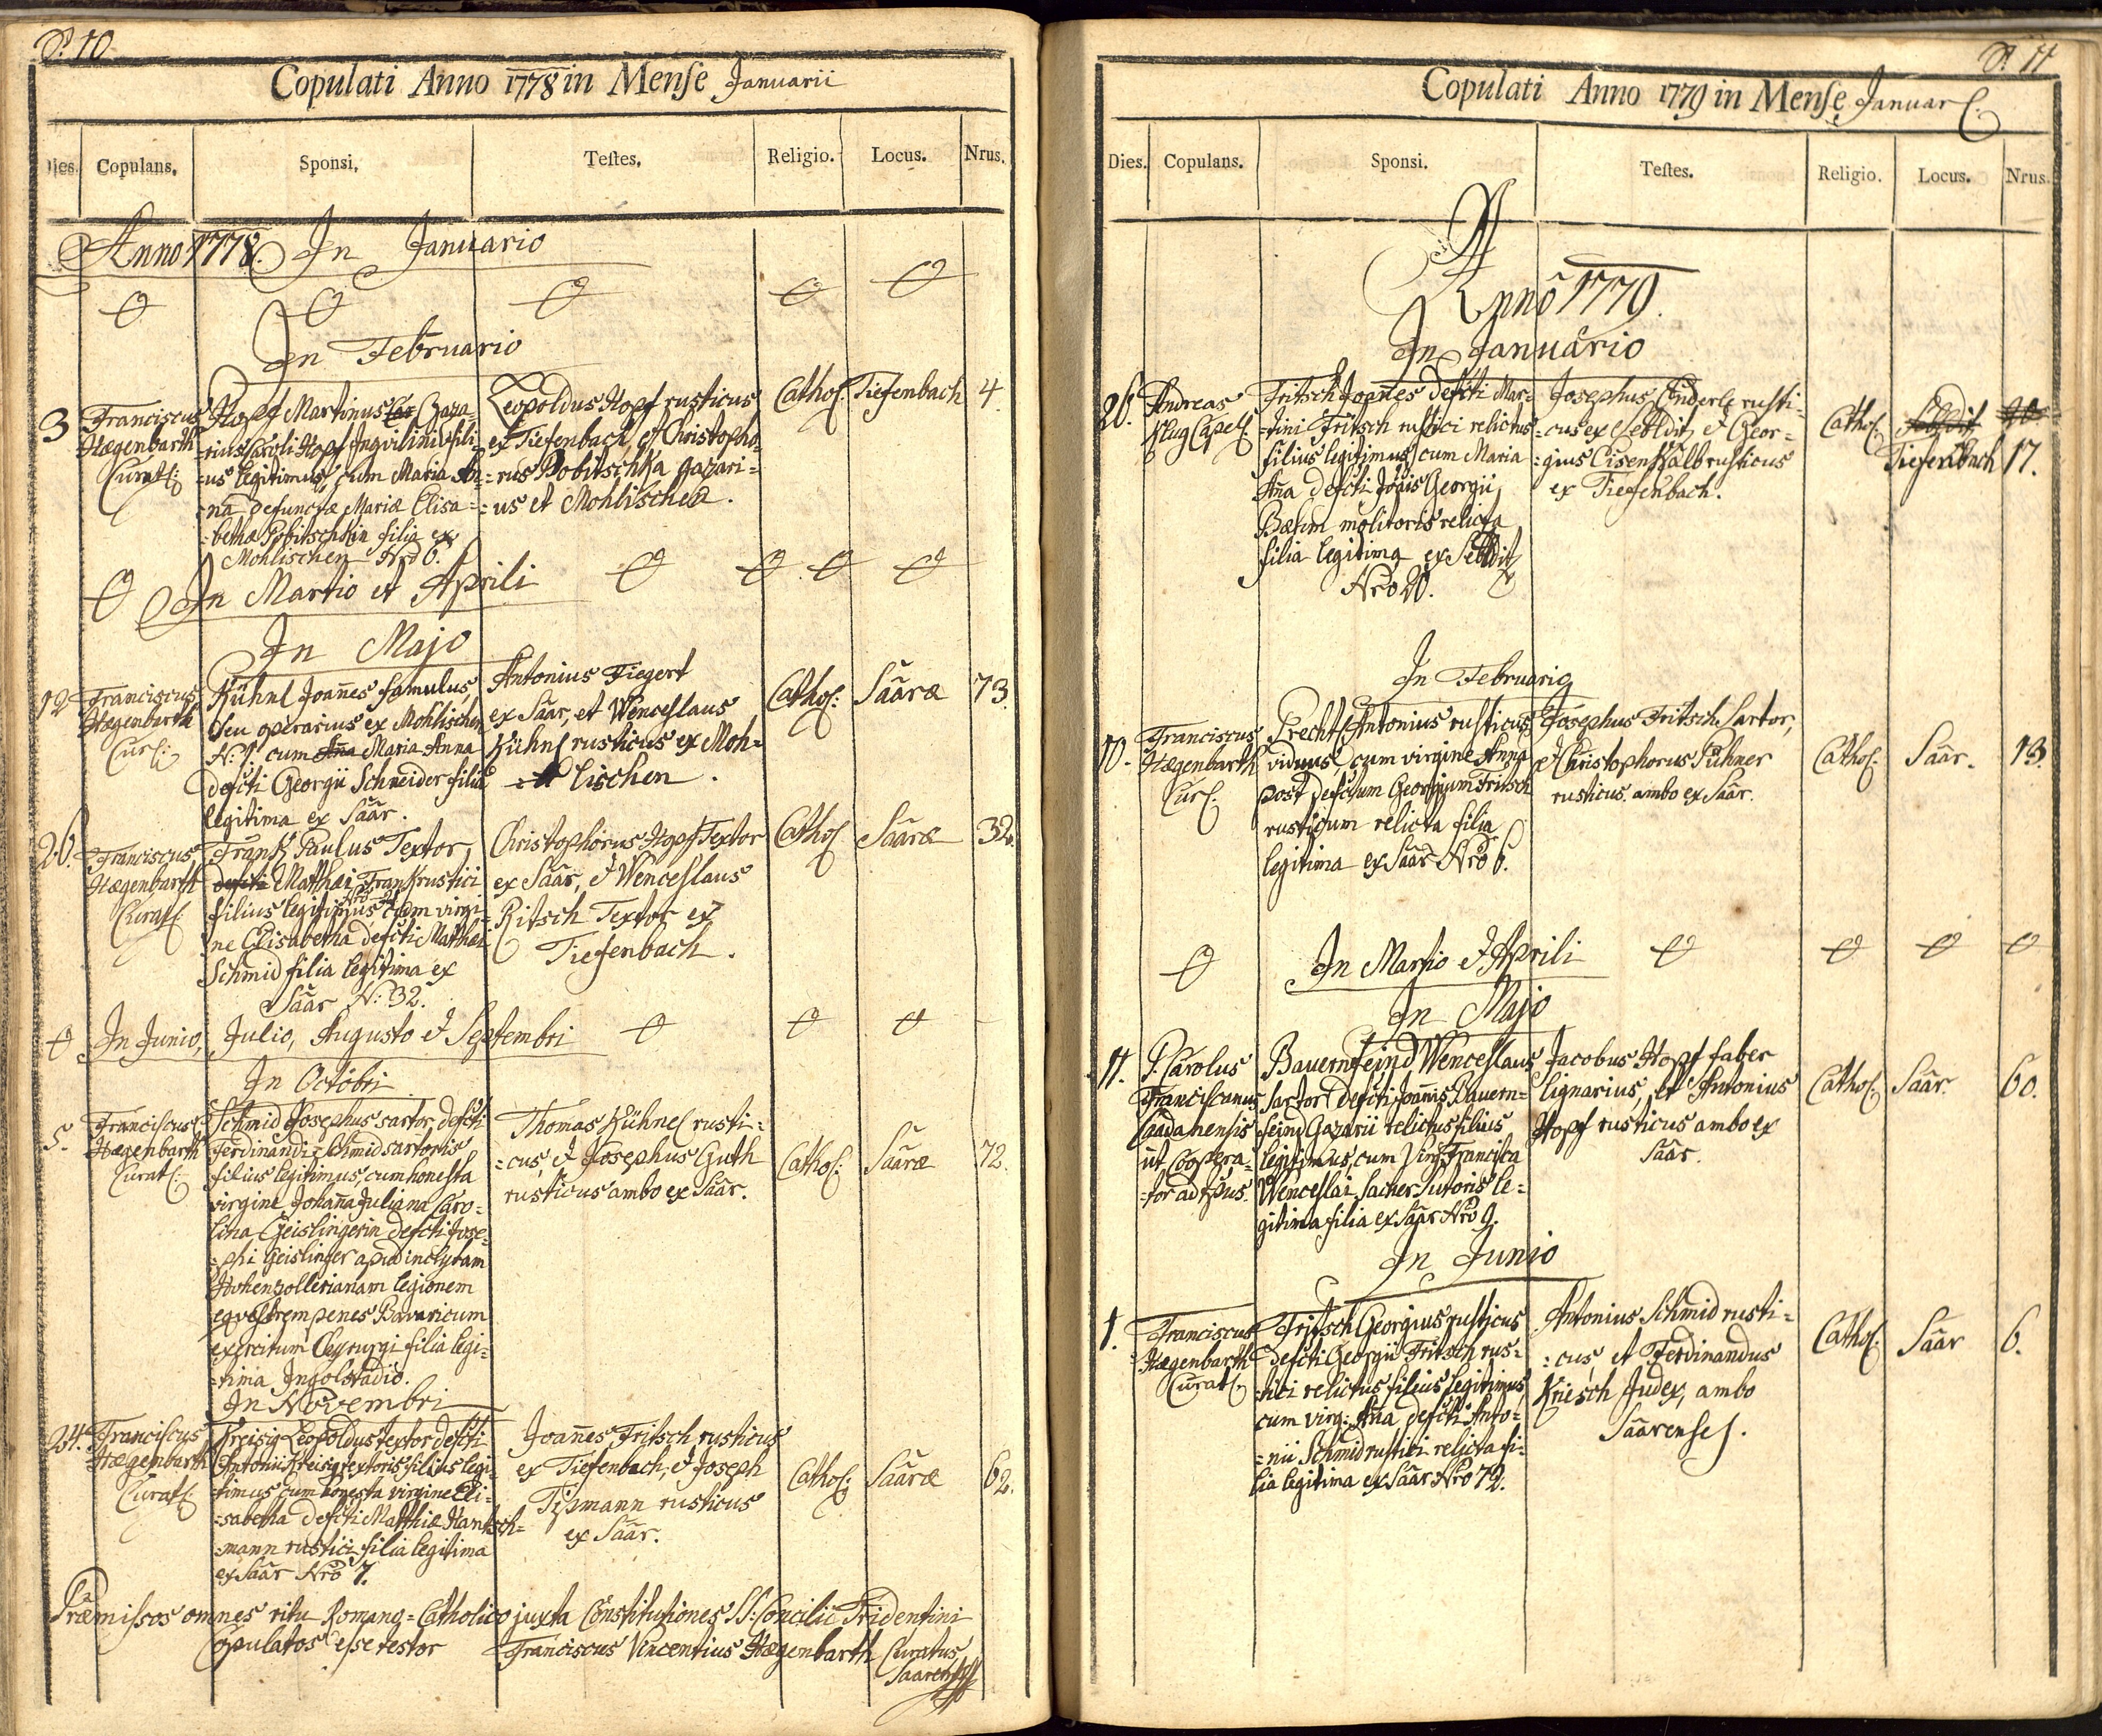 P. 10
Copulati Anno 1778 in Menſe Januarii
Dies. Copulans. Sponsi. Teſtes. Religio. Locus. Nrus.
Anno 1778. In Januario
In Februario
3 Franciscus
Hægenbarth
Curat:
Hopf Martinus Gaza-
-rius Caroli Hopf Inquilini fili-
-us legitimus, cum Maria An-
-na defunctæ Mariæ Elisa-
-bethæ Pobitschkin filia ex
Mohlischen Nro 6.
Leopoldus Hopf rusticus
ex Tiefenbach, et Christopho-
-rus Pobitschka gazari-
-us ex Mohlischen.
Cathol: Tiefenbach 4.
In Martio et Aprili
In Majo
12 Franciscus
Hægenbarth
Cur:
Kühnl Joannes famulus,
seu operarius ex Mohlischen
N: 1. cum Maria Anna
defcti Georgii Schneider filia
legitima ex Säär.
Antonius Fiegert
ex Säär, et Wenceslaus
Kühnl rusticus ex Moh=
lischen.
Cathol: Sääræ 73.
26. Franciscus
Hægenbarth
Curat:
Frank Paulus Textor,
defcti Matthæi Frank rustici
filius legitimus cum virgi-
ne Elisabetha defcti Mathæi
Schmid filia legitima ex
Säär N: 32.
Christophorus Hopf Textor
ex Säär, et Wenceslaus
Ritsch Textor ex
Tiefenbach.
Cathol Sääræ 32.
In Junio, Julio, Augusto et Septembri
In Octobri
5. Franciscus
Hægenbarth
Curat:
Schmid Josephus sartor, defcti
Ferdinandi Schmid sartoris
filius legitimus, cum honesta
virgine Johanna Juliana Caro-
lina Geislingerin defcti Jose-
-phi Geislinger apud inclytam
Hohenzollerianam legionem
equestrem penes Bavaricum
exercitum Chyrurgi filia legi-
-tima Ingolstadio.
Thomas Kühnel rusti=
=cus, et Josephus Guth
rusticus ambo ex Säär.
Cathol: Sääræ 72.
In Novembri
24. Franciscus
Hægenbarth
Curat:
Kreisig Leopoldus textor defcti
Antonii Kreisig textoris filius legi-
-timus cum honesta virgine Eli-
-sabetha defcti Matthiæ Hantsch-
-mann rustici filia legitima
ex Säär Nro 7.
Joannes Fritsch rusticus
ex Tiefenbach, et Joseph
Tipmann rusticus
ex Säär.
Cathol: Sääræ 62.
Præmissos omnes ritu Romano=Catholico juxta Constitutiones SS: Concilii Tridentini
copulatos esse testor Franciscus Vincentius Hægenbarth Curatus
Saarensis
P. 11
Copulati Anno 1779 in Menſe Januar
Dies. Copulans. Sponsi. Teſtes. Religio. Locus. Nrus.
Anno 1779.
In Januario
26. Andreas
Klug Capel
Fritsch Joannes defcti Mar-
-tini Fritsch rustici relictus
filius legitimus, cum Maria
Anna defcti Joānis Georgii
Bœhm molitoris relicta
filia legitima ex Seeldit
Nro 20.
Josephus Enderle rusti-
-cus ex Seeldit, et Geor-
=gius Eisenkalb rusticus
ex Tiefenbach.
Cathol: Seeldit 20
Tiefenbach 17.
In Februario
10. Franciscus
Hægenbarth
Cur:
Precht Antonius rusticus
viduus, cum virgine Anna
post defctum Georgium Fritsch
rusticum relicta filia
legitima ex Säär Nro 6.
Josephus Fritsch Sartor,
et Christophorus Pühner
rusticus ambo ex Säär.
Cathol: Säär. 13.
In Martio et Aprili
In Majo
11. P. Carolus
Franciscanus
Caadanensis
ut Coopera-
-tor ad hus.
Bauernfeind Wenceslaus
sartor defcti Joannis Bauern=
feind Gazarii relictus filius
legitimus, cum Virg: Francisca
Wenceslai Sacher sutoris le-
gitima filia ex Säär Nro 9.
Jacobus Hopf faber
lignarius, et Antonius
Hopf rusticus ambo ex
Säär.
Cathol: Säär. 60.
In Junio
1. Franciscus
Hægenbarth
Curat:
Fritsch Georgius rusticus
defcti Georgii Fritsch rus-
-tici relictus filius legitimus
cum virg: Anna defcti Anto-
=nii Schmid rustici relicta fi-
lia legitima ex Säär Nro 72.
Antonius Schmid rusti=
=cus, et Ferdinandus
Kriesch Judex, ambo
Säärenses.
Cathol: Säär 6.